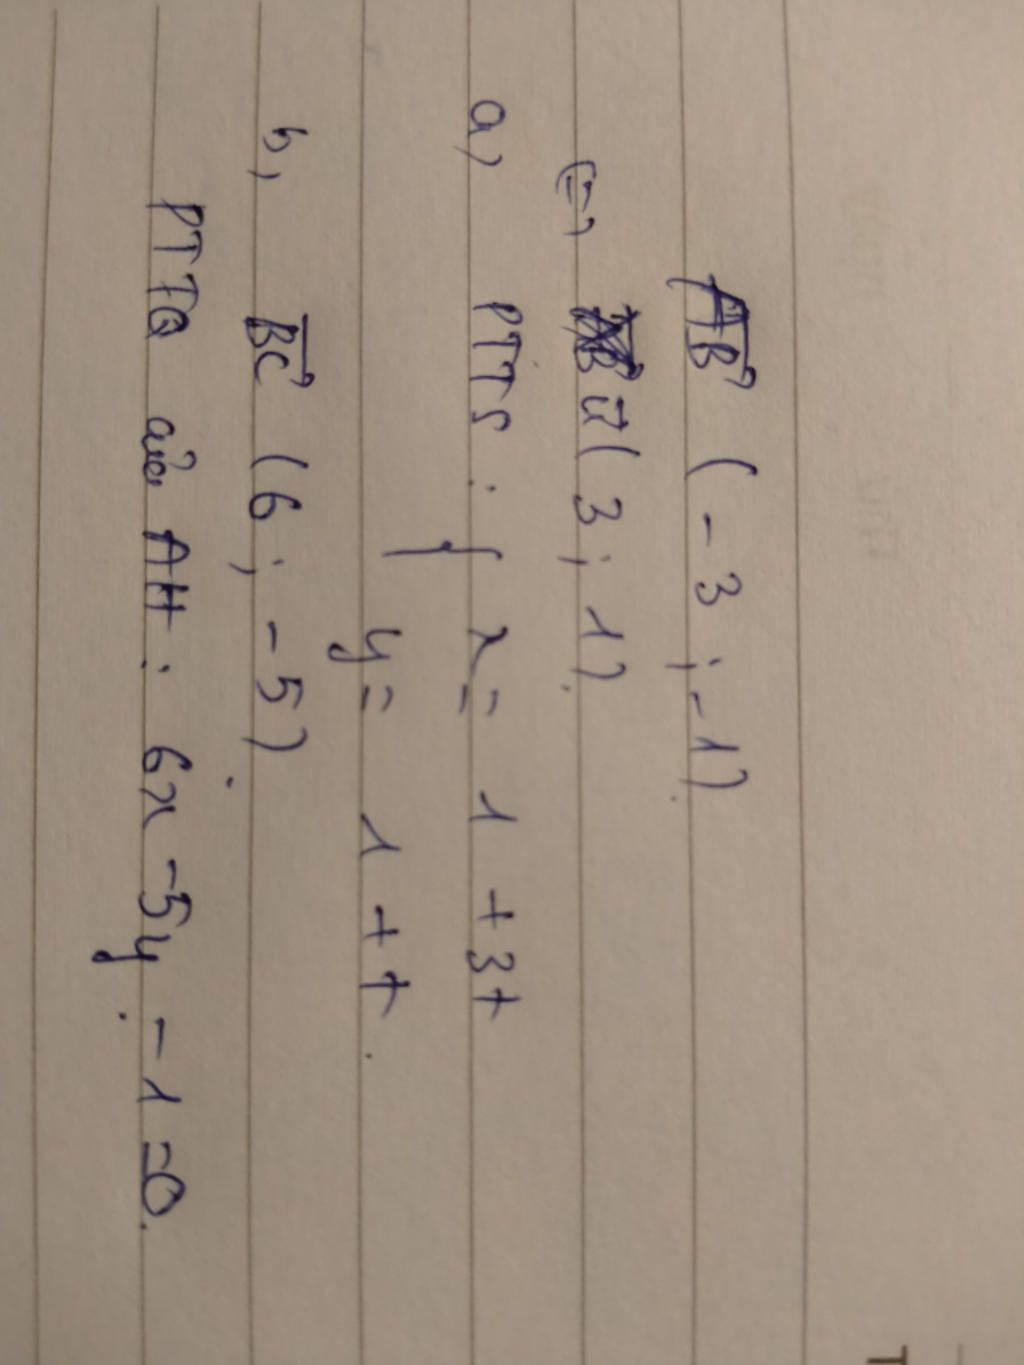 AB (-3 ; -1)
(=) u (3 ; 1)
a, PTTS : { x = 1 + 3t
y = 1 + t
b, BC (6 ; -5)
PTTQ của AH : 6x - 5y - 1 = 0.